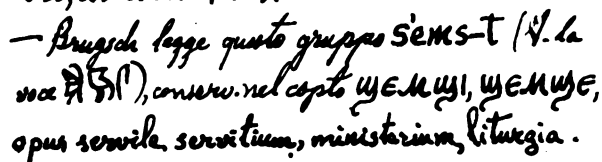 — Brugsch legge questo gruppo S'ems-t (V. la
voce ), conserv. nel copto ϣⲉⲙϣⲓ, ϣⲉⲙϣⲉ,
opus servile, servitium, ministerium, liturgia.